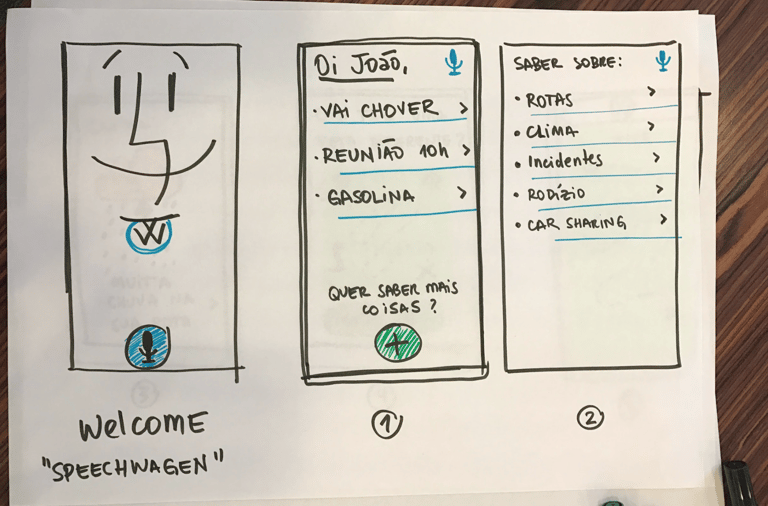 W
Welcome
"SPEECHWAGEN"
Oi João,
• VAI CHOVER >
• REUNIÃO 10h >
• GASOLINA >
QUER SABER MAIS
COISAS ?
+
1
SABER SOBRE:
• ROTAS >
• CLIMA >
• Incidentes >
• RODÍZIO >
• CAR SHARING >
2